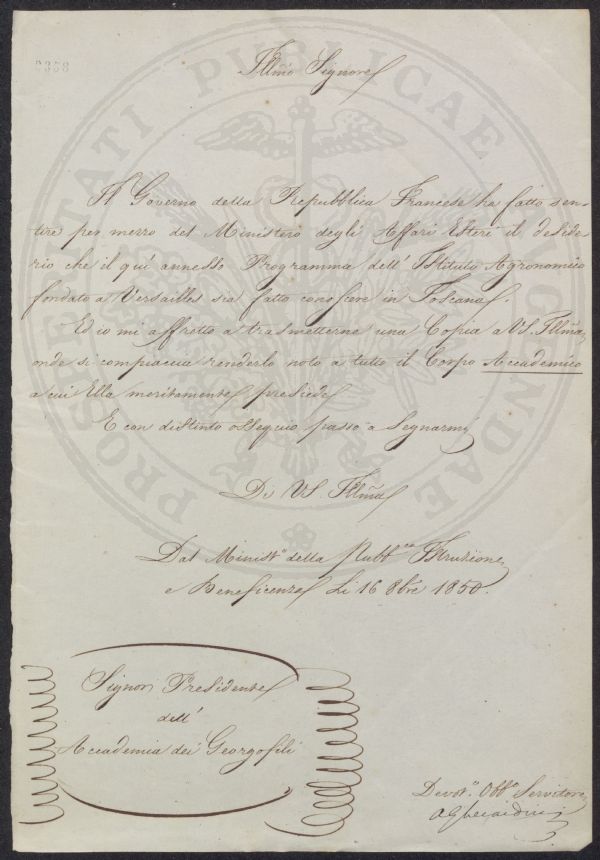 2358
Illmo Signore
Il Governo della Repubblica Francese ha fatto sen-
tire per mezzo del Ministero degli Affari Esteri il deside
rio che il quì annesso Programma dell' Istituto Agronomico
fondato a Versailles sia fatto conoscere in Toscana.
Ed io mi affretto a trasmetterne una Copia a VS. Illm̃a
onde si compiaccia renderlo noto a tutto il Corpo Accademico
a cui Ella meritamente presiede
E con distinto ossequio passo a segnarmi
Di VS. Illm̃a
Dal Minist.º della Pubb.ca Istruzione
e Beneficenza Li 16 8bre 1850.
Signor Presidente
dell'
Accademia dei Georgofili
Devot.º Obb.º Servitore
PROSPERITATI PUBLICAE AUGENDAE